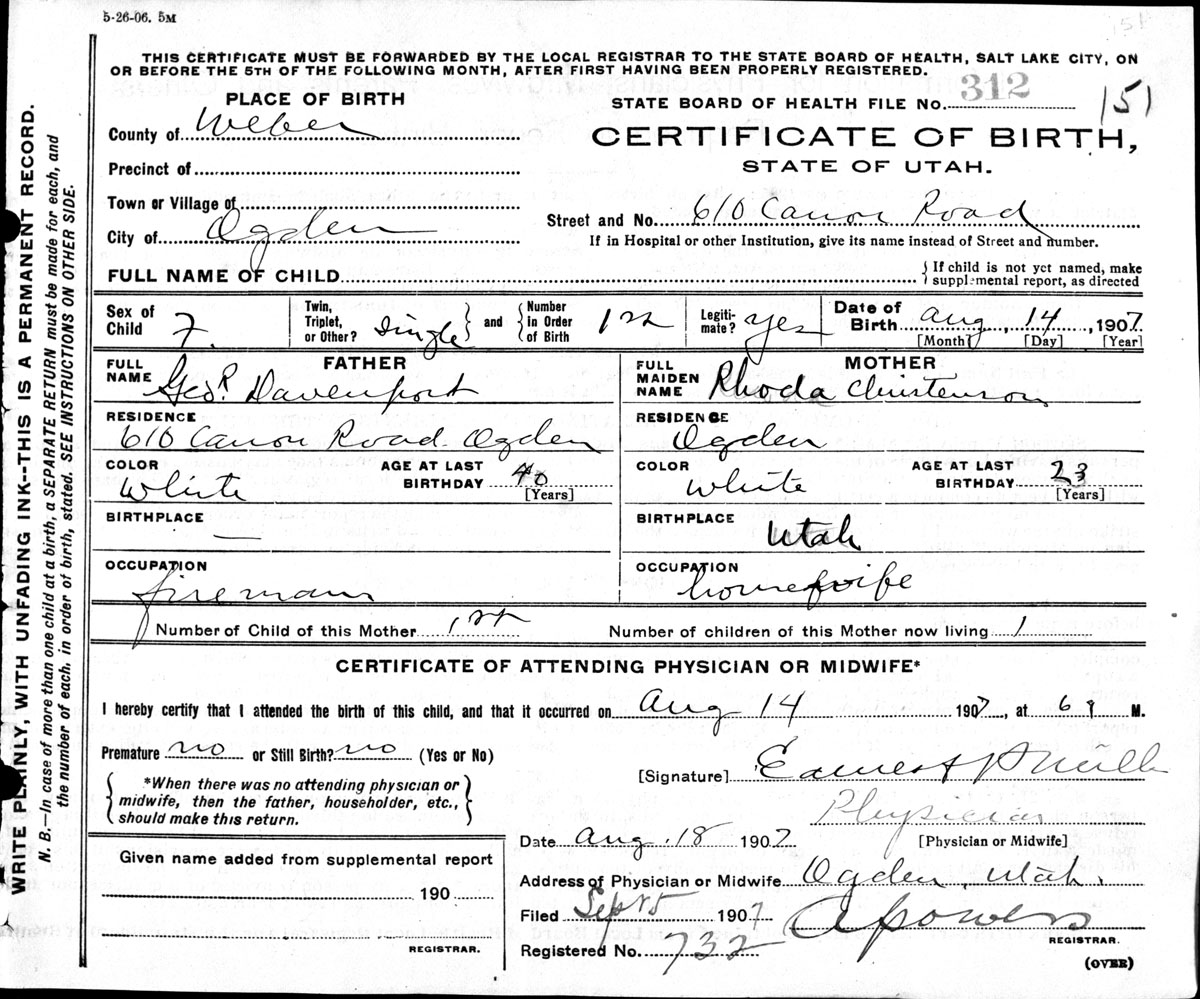 5-26-06. 5M
151
THIS CERTIFICATE MUST BE FORWARDED BY THE LOCAL REGISTRAR TO THE STATE BOARD OF HEALTH, SALT LAKE CITY, ON
OR BEFORE THE 5TH OF THE FOLLOWING MONTH, AFTER FIRST HAVING BEEN PROPERLY REGISTERED.
PLACE OF BIRTH
STATE BOARD OF HEALTH FILE No. 312
151
County of Weber
CERTIFICATE OF BIRTH,
STATE OF UTAH.
Precinct of
Town or Village of
City of Ogden
Street and No. 610 Canon Road
If in Hospital or other Institution, give its name instead of Street and number.
FULL NAME OF CHILD
{ If child is not yet named, make
supplemental report, as directed
Sex of Child F.
Twin, Triplet, or Other? Single } and { Number in Order of Birth 1st
Legiti-mate? yes
Date of Birth Aug, 14, 1907
[Month] [Day] [Year]
FATHER
FULL NAME Geo. R. Davenport
MOTHER
FULL MAIDEN NAME Rhoda Christenson
RESIDENCE
610 Canon Road. Ogden
RESIDENCE
Ogden
COLOR White
AGE AT LAST BIRTHDAY 40 [Years]
COLOR White
AGE AT LAST BIRTHDAY 23 [Years]
BIRTHPLACE —
BIRTHPLACE Utah
OCCUPATION fireman
OCCUPATION housewife
Number of Child of this Mother 1st
Number of children of this Mother now living 1
CERTIFICATE OF ATTENDING PHYSICIAN OR MIDWIFE*
I hereby certify that I attended the birth of this child, and that it occurred on Aug 14 1907, at 6 M.
Premature no or Still Birth? no (Yes or No)
{ *When there was no attending physician or
midwife, then the father, householder, etc.,
should make this return. }
[Signature] Earnest P Mills
Physician
[Physician or Midwife]
Date Aug. 18 1907
Given name added from supplemental report
190
REGISTRAR.
Address of Physician or Midwife Ogden, Utah.
Filed Sept 5 1907
A Powers
REGISTRAR.
Registered No. 732
(OVER)
WRITE PLAINLY, WITH UNFADING INK--THIS IS A PERMANENT RECORD.
N. B.—In case of more than one child at a birth, a SEPARATE RETURN must be made for each, and
the number of each, in order of birth, stated. SEE INSTRUCTIONS ON OTHER SIDE.